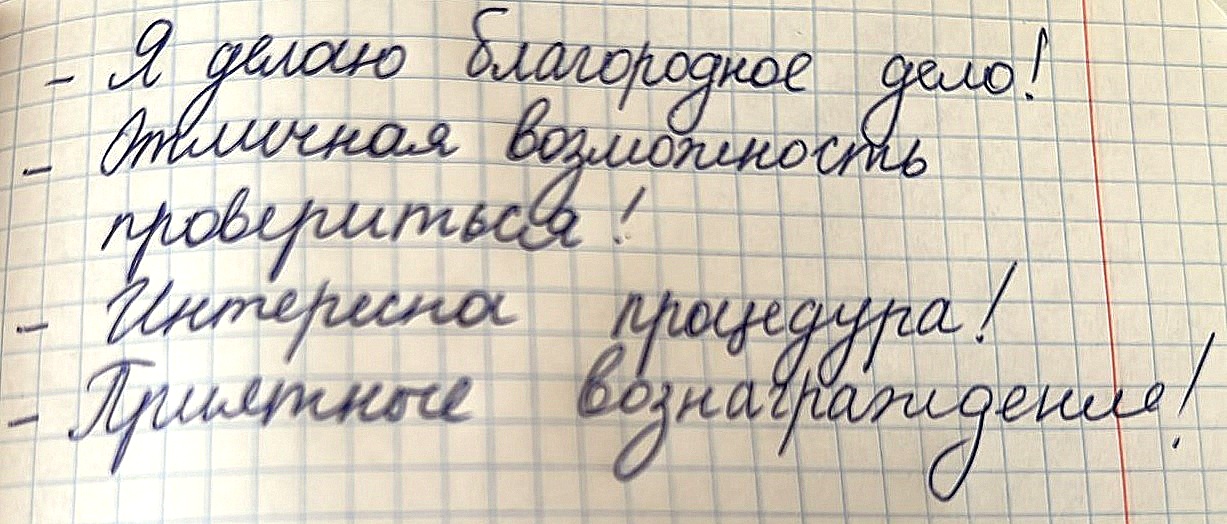 - Я делаю благородное дело!
- Отличная возможность
провериться!
- Интересна процедура!
- Приятные вознаграждение!